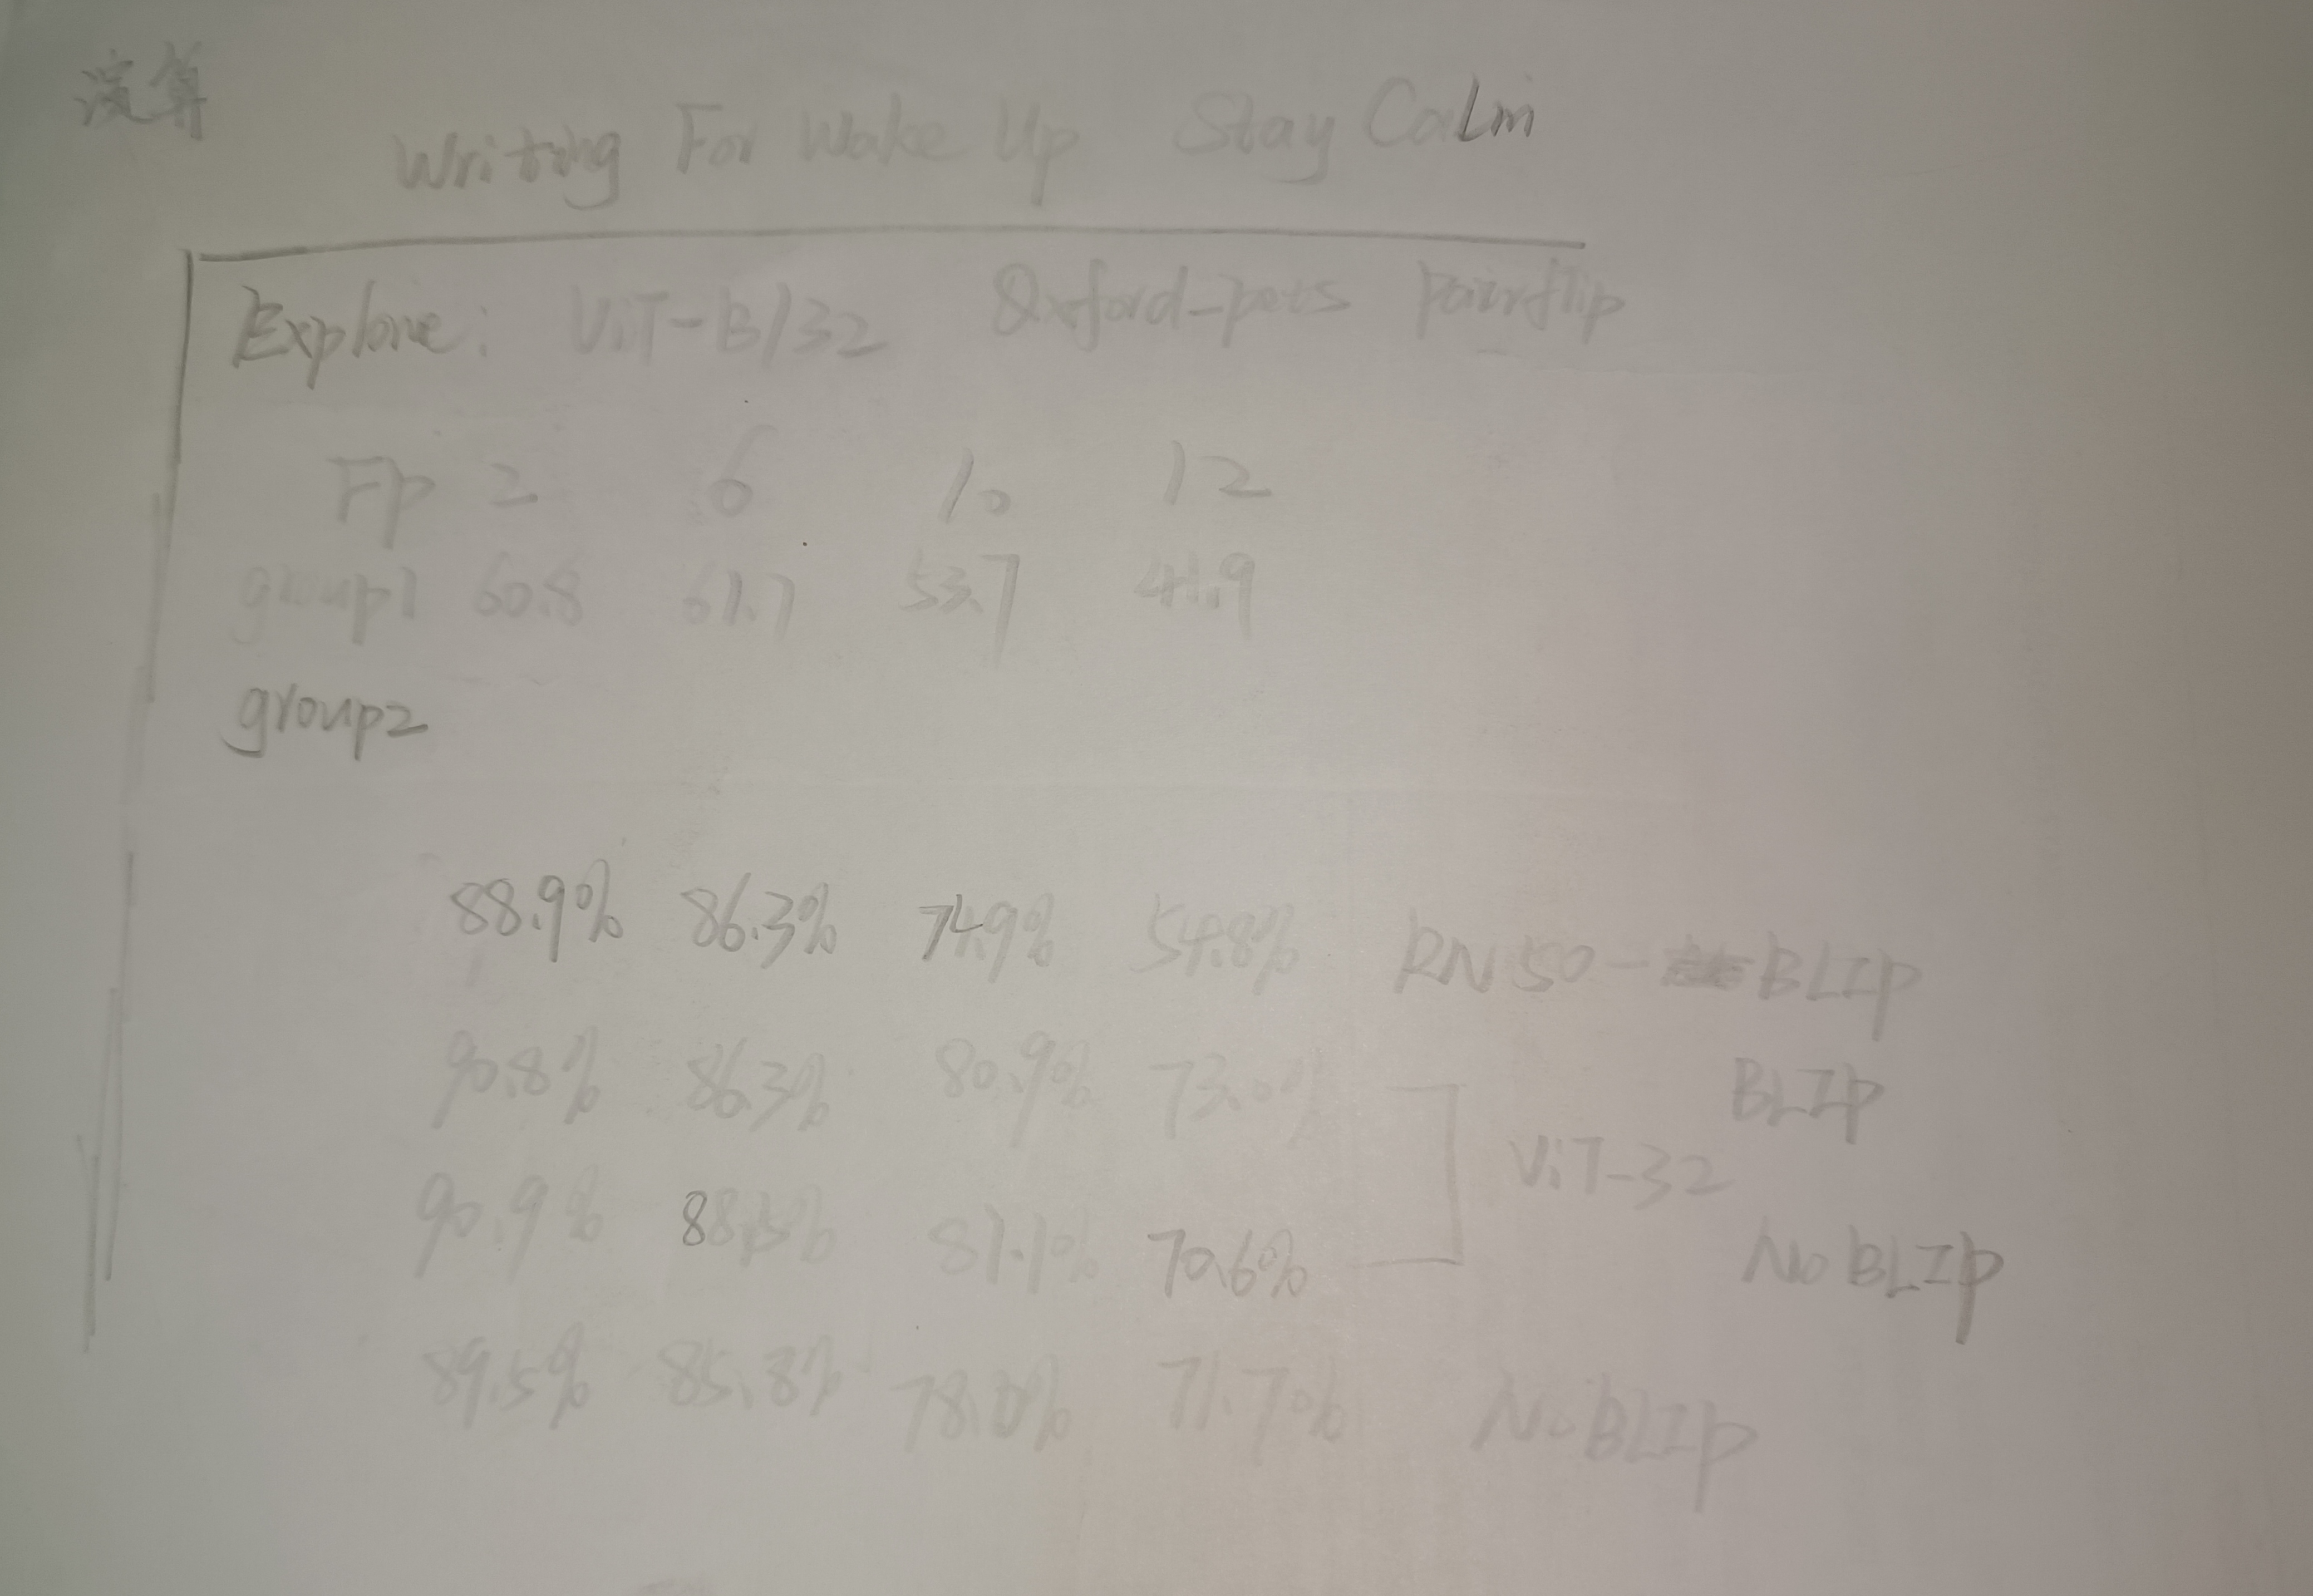 演算
Writing For Wake Up Stay Calm
Explore: ViT-B/32 Oxford-pets Pairflip
FP 2 6 10 12
group1 60.8 61.7 53.7 41.9
group2
88.9% 86.3% 74.9% 54.8% RN50-BLIP
90.8% 86.3% 80.9% 73.0% BLIP
ViT-32
90.9% 81.1% 70.6% No BLIP
89.5% 85.8% 78.0% 71.7% No BLIP